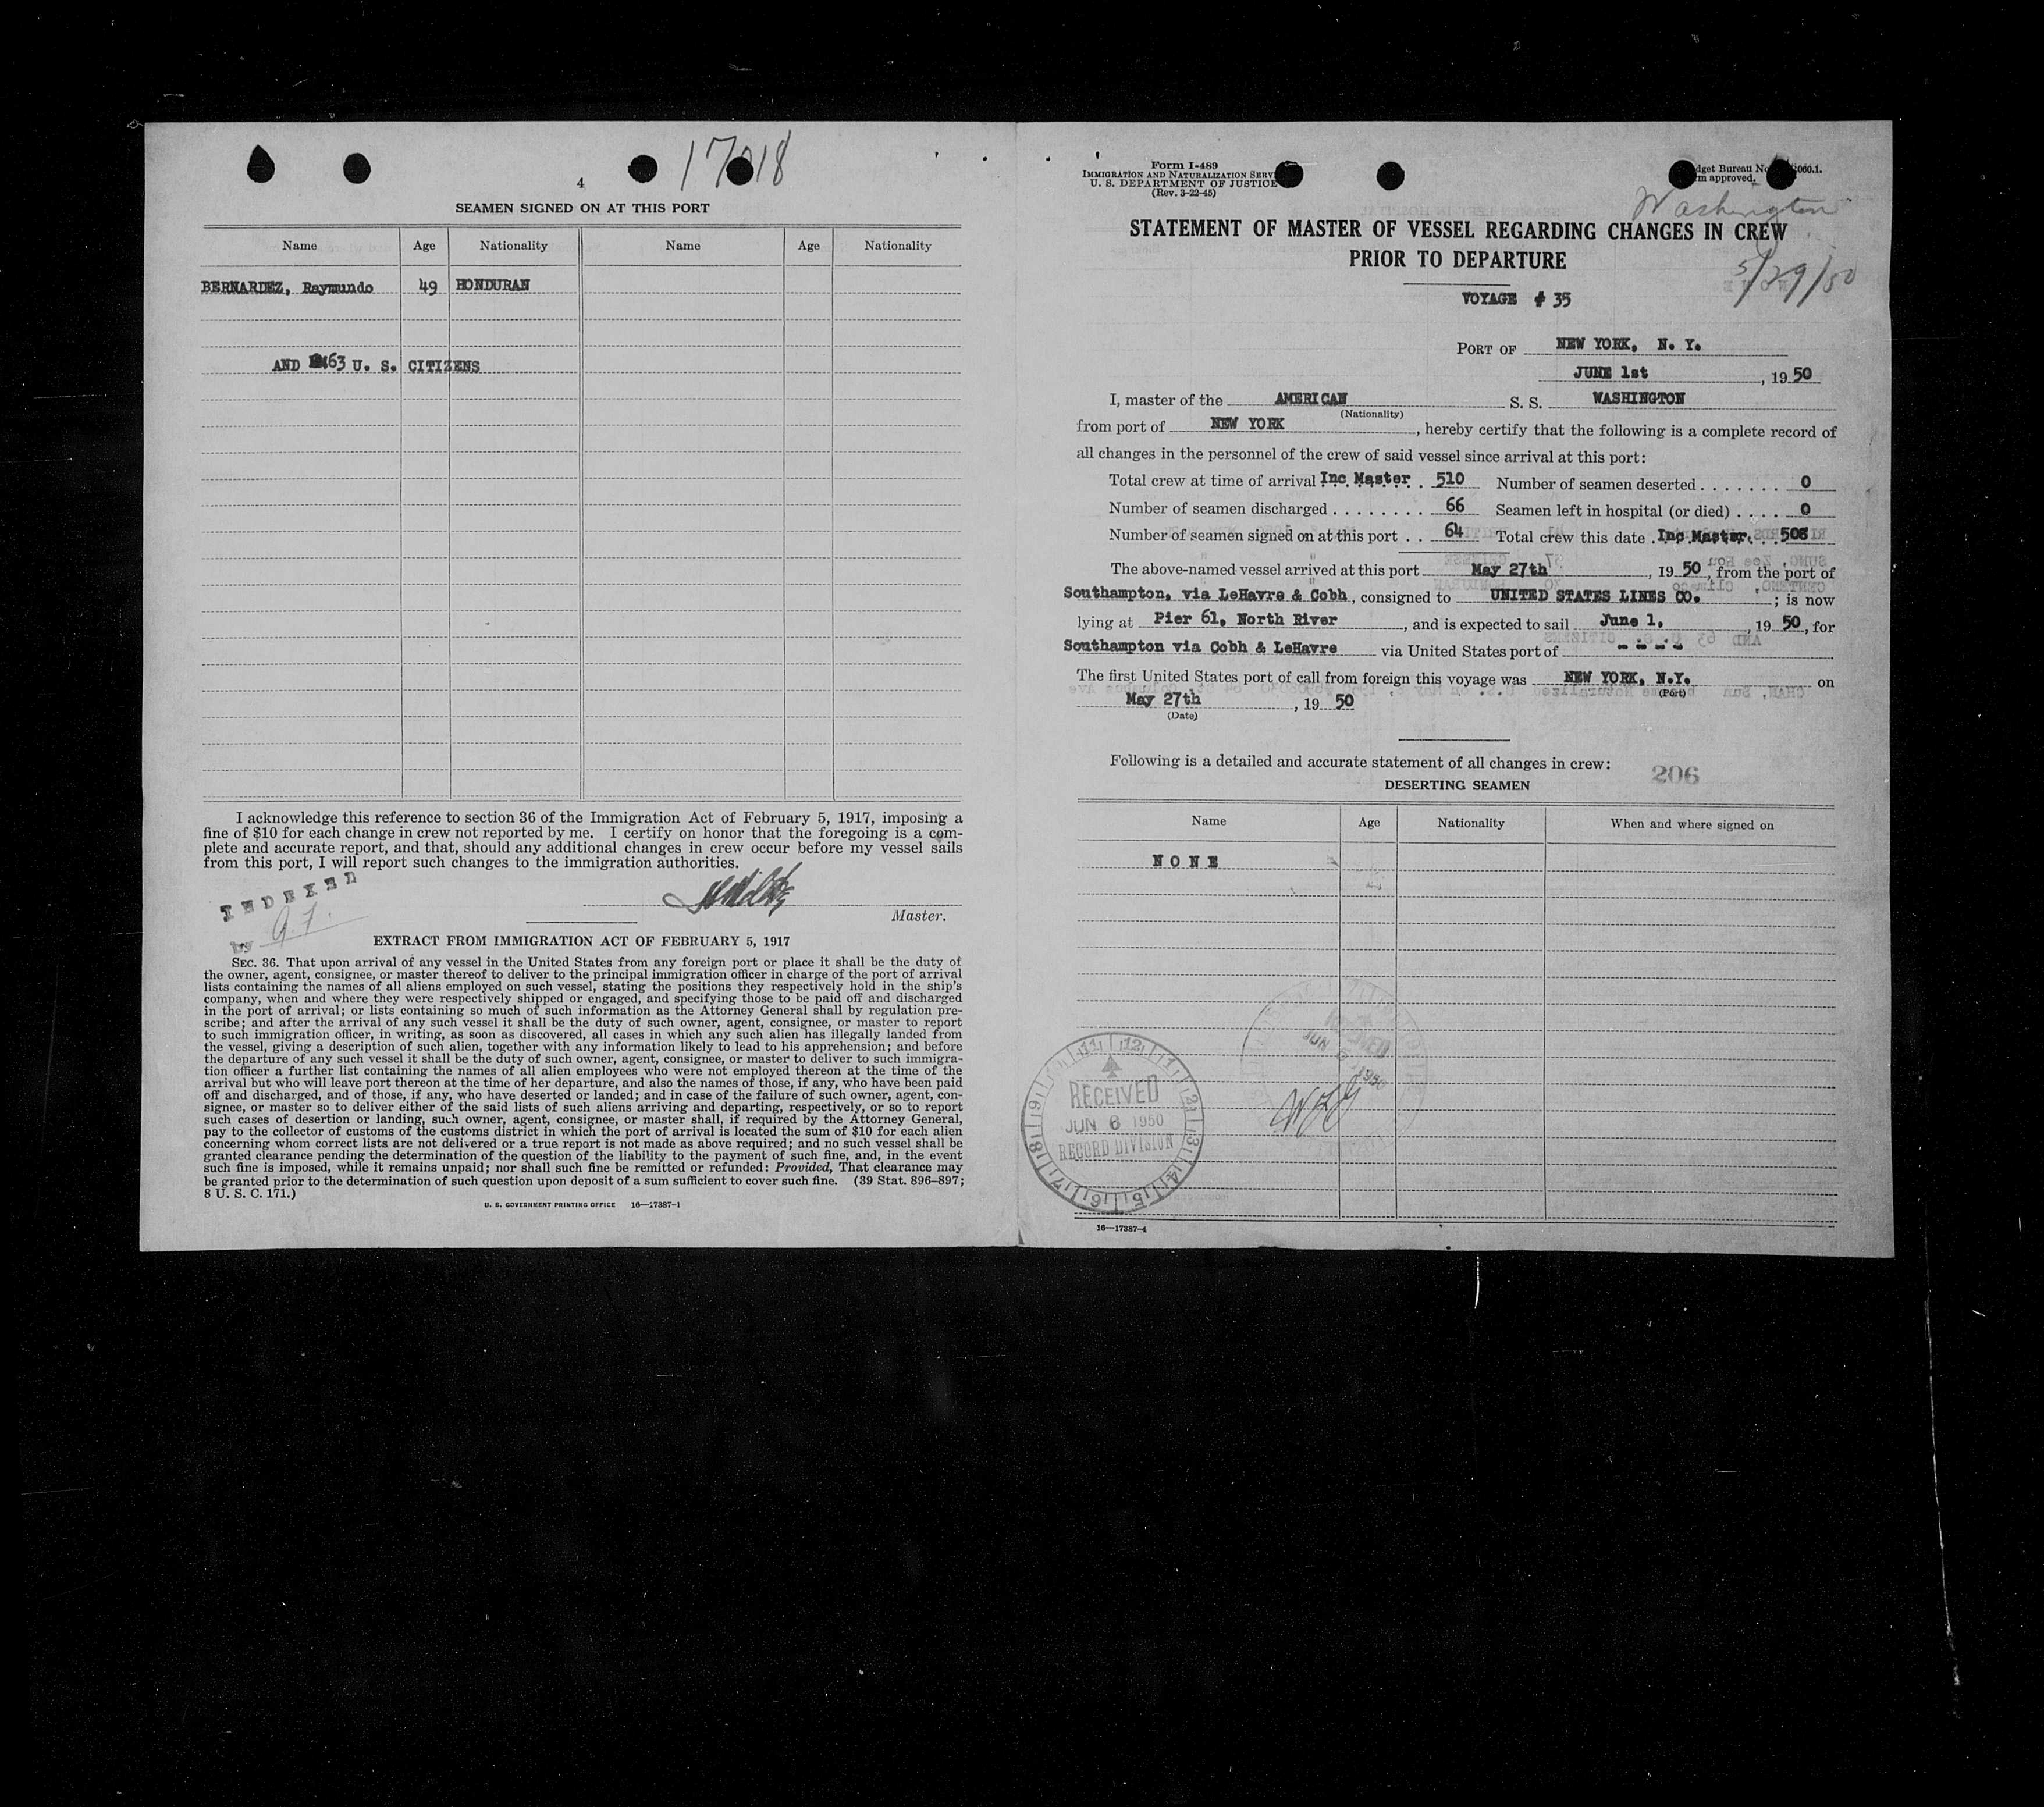 17018
4
SEAMEN SIGNED ON AT THIS PORT
Name Age Nationality Name Age Nationality
BERNARDEZ, Raymundo 49 HONDURAN
AND 63 U. S. CITIZENS
I acknowledge this reference to section 36 of the Immigration Act of February 5, 1917, imposing a
fine of $10 for each change in crew not reported by me. I certify on honor that the foregoing is a com-
plete and accurate report, and that, should any additional changes in crew occur before my vessel sails
from this port, I will report such changes to the immigration authorities.
INDEXED
by
Master.
EXTRACT FROM IMMIGRATION ACT OF FEBRUARY 5, 1917
SEC. 36. That upon arrival of any vessel in the United States from any foreign port or place it shall be the duty of
the owner, agent, consignee, or master thereof to deliver to the principal immigration officer in charge of the port of arrival
lists containing the names of all aliens employed on such vessel, stating the positions they respectively hold in the ship's
company, when and where they were respectively shipped or engaged, and specifying those to be paid off and discharged
in the port of arrival; or lists containing so much of such information as the Attorney General shall by regulation pre-
scribe; and after the arrival of any such vessel it shall be the duty of such owner, agent, consignee, or master to report
to such immigration officer, in writing, as soon as discovered, all cases in which any such alien has illegally landed from
the vessel, giving a description of such alien, together with any information likely to lead to his apprehension; and before
the departure of any such vessel it shall be the duty of such owner, agent, consignee, or master to deliver to such immigra-
tion officer a further list containing the names of all alien employees who were not employed thereon at the time of the
arrival but who will leave port thereon at the time of her departure, and also the names of those, if any, who have been paid
off and discharged, and of those, if any, who have deserted or landed; and in case of the failure of such owner, agent, con-
signee, or master so to deliver either of the said lists of such aliens arriving and departing, respectively, or so to report
such cases of desertion or landing, such owner, agent, consignee, or master shall, if required by the Attorney General,
pay to the collector of customs of the customs district in which the port of arrival is located the sum of $10 for each alien
concerning whom correct lists are not delivered or a true report is not made as above required; and no such vessel shall be
granted clearance pending the determination of the question of the liability to the payment of such fine, and, in the event
such fine is imposed, while it remains unpaid; nor shall such fine be remitted or refunded: Provided, That clearance may
be granted prior to the determination of such question upon deposit of a sum sufficient to cover such fine. (39 Stat. 896–897;
8 U. S. C. 171.)
U. S. GOVERNMENT PRINTING OFFICE 16—17387-1
Form I-489
IMMIGRATION AND NATURALIZATION SERV
U. S. DEPARTMENT OF JUSTICE
(Rev. 3-22-45)
dget Bureau No. 060.1.
m approved.
Washington
STATEMENT OF MASTER OF VESSEL REGARDING CHANGES IN CREW
PRIOR TO DEPARTURE
5/29/50
VOYAGE # 35
PORT OF NEW YORK, N. Y.
JUNE 1st, 1950
I, master of the AMERICAN S. S. WASHINGTON
(Nationality)
from port of NEW YORK, hereby certify that the following is a complete record of
all changes in the personnel of the crew of said vessel since arrival at this port:
Total crew at time of arrival Inc Master. 510 Number of seamen deserted . . . . . . . 0
Number of seamen discharged . . . . . . . . 66 Seamen left in hospital (or died) . . . . 0
Number of seamen signed on at this port . . 64 Total crew this date . Inc Master. . . 508
The above-named vessel arrived at this port May 27th, 1950, from the port of
Southampton, via LeHavre & Cobh, consigned to UNITED STATES LINES CO.; is now
lying at Pier 61, North River, and is expected to sail June 1, 1950, for
Southampton via Cobh & LeHavre via United States port of - - - -
The first United States port of call from foreign this voyage was NEW YORK, N.Y. on
(Port)
May 27th, 1950
(Date)
Following is a detailed and accurate statement of all changes in crew:
206
DESERTING SEAMEN
Name Age Nationality When and where signed on
NONE
RECEIVED
JUN 6 1950
RECORD DIVISION
16—17387-4